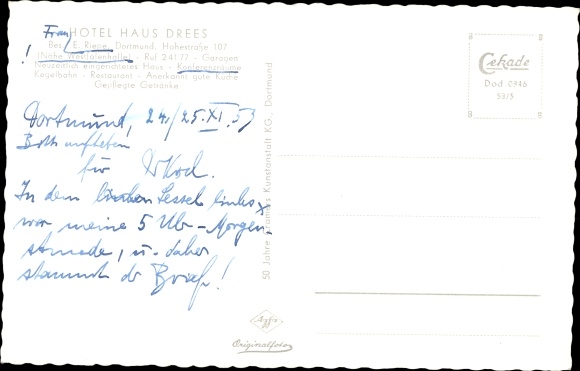 Frau
HOTEL HAUS DREES
! Bes. E. Riepe, Dortmund, Hohestraße 107
(Nähe Westfalenhalle) - Ruf 24177 - Garagen
Neuzeitlich eingerichtetes Haus - Konferenzräume
Kegelbahn - Restaurant - Anerkannt gute Küche
Gepflegte Getränke
Cekade
Dod 0946
53/5
Dortmund, 24./25.XI.53
Bitte aufheben
für
In dem Sessel links x
war meine 5 Uhr-Morgen-
stunde, u. daher
stammt der Brief!
50 Jahre Kramers Kunstanstalt KG., Dortmund
Agfa
Originalfoto